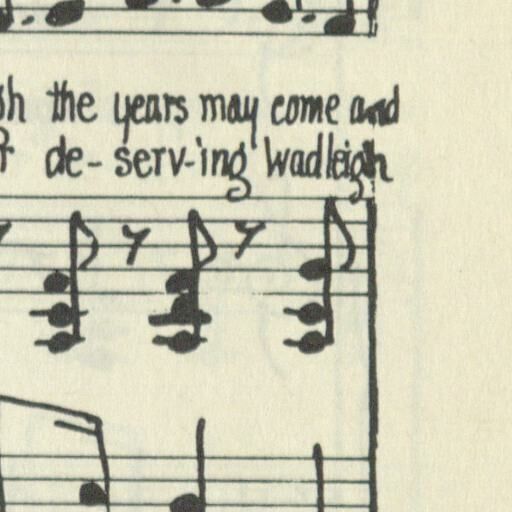 the years may come and
de- serv-ing Wadleigh